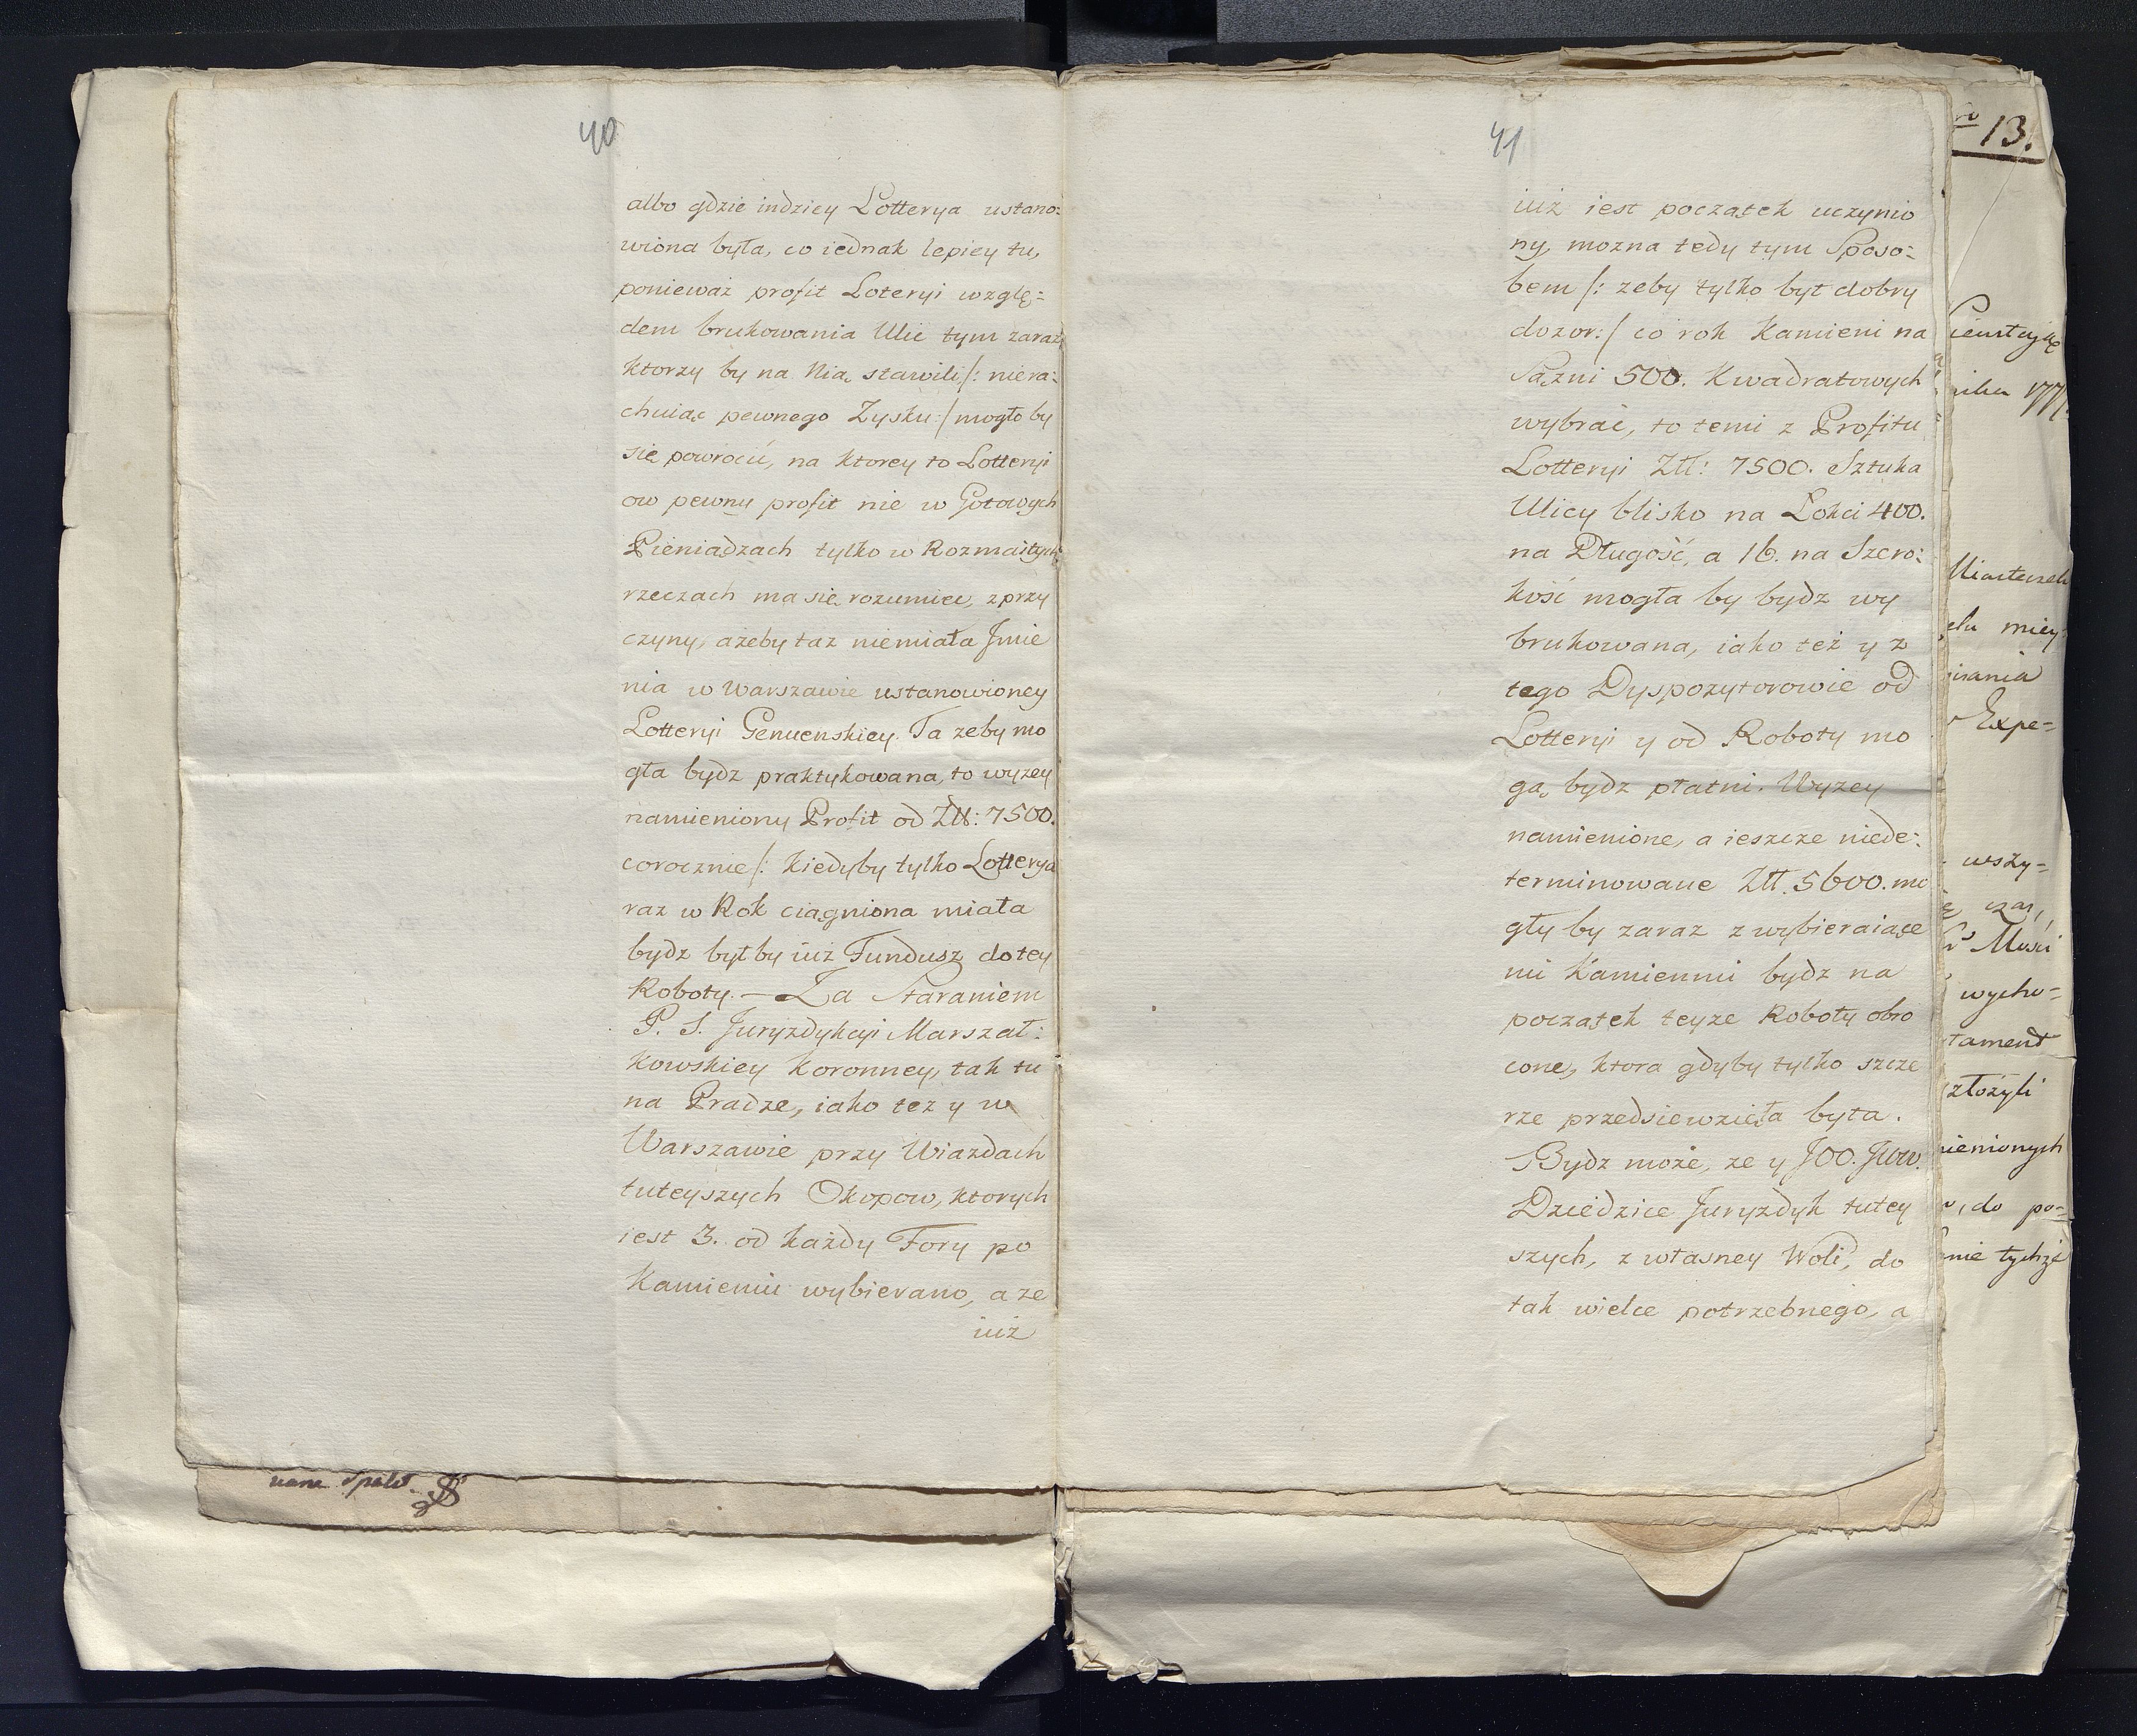 40
albo gdzie indziey Lotterya ustano:
wiona była, co iednak lepiey tu,
ponieważ profit Loteryi wzglę:
dem brukowania Ulic tym zaraz,
ktorzy by na Nią stawili /: niera:
chuiąc pewnego Zysku :/ mogło by
się powrocić, na ktorey to Lotteryi
ow pewny profit nie w Gotowych
Pieniadzach tylko w Rozmaitych
rzeczach ma się rozumiec, z przy
czyny, ażeby taz niemiała Jmie
nia w Warszawie ustanowioney
Lotteryi Genuenskiey. Ta zeby mo
gła bydz praktykowana, to wyzey
namieniony Profit od Złł: 7500.
corocznie /: kiedyby tylko Lotterya
raz w Rok ciągniona miała
bydz był by iuż Fundusz do tey
Roboty. — Za Staraniem
P. S. Juryzdykcyi Marszał:
kowskiey Koronney, tak tu
na Pradze, iako tez y w
Warszawie przy Wiazdach
tuteyszych Okopow, ktorych
iest 3. od każdy Fory po
Kamieniu wybierano, a ze
iuż
nane
41
iuż iest początek uczynio
ny, mozna tedy tym Sposo:
bem /: zeby tylko był dobry
dozor :/ co rok Kamieni na
Sązni 500. Kwadratowych
wybrać, to temi z Profitu
Lotteryi Złł: 7500. Sztuka
Ulicy blisko na Łokci 400.
na Długość, a 16. na Szero:
kość mogła by bydz wy
brukowana, iako też y z
tego Dyspozytorowie od
Lotteryi y od Roboty mo
gą bydz płatni. Wyzey
namienione, a ieszcze niede:
terminowane Złł. 5600. mo
gły by zaraz z wybieraiące
mi Kamienmi bydz na
początek teyze Roboty obro
cone, ktora gdyby tylko szcze
rze przedsiewzięta była.
Bydz może, ze y JOO. Jww.
Dziedzice Juryzdyk tutey
szych, z własney Woli, do
tak wielce potrzebnego, a
13.
Miasteczek
miey
Expe=
wszy=
czas,
wycho=
tament
złożyli
nienionych
do po=
tychże